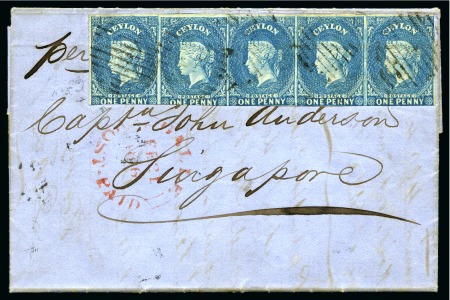 CEYLON CEYLON CEYLON CEYLON CEYLON
per
POSTAGE POSTAGE POSTAGE POSTAGE POSTAGE
ONE PENNY ONE PENNY ONE PENNY ONE PENNY ONE PENNY
Captn John Anderson
PAID
Singapore